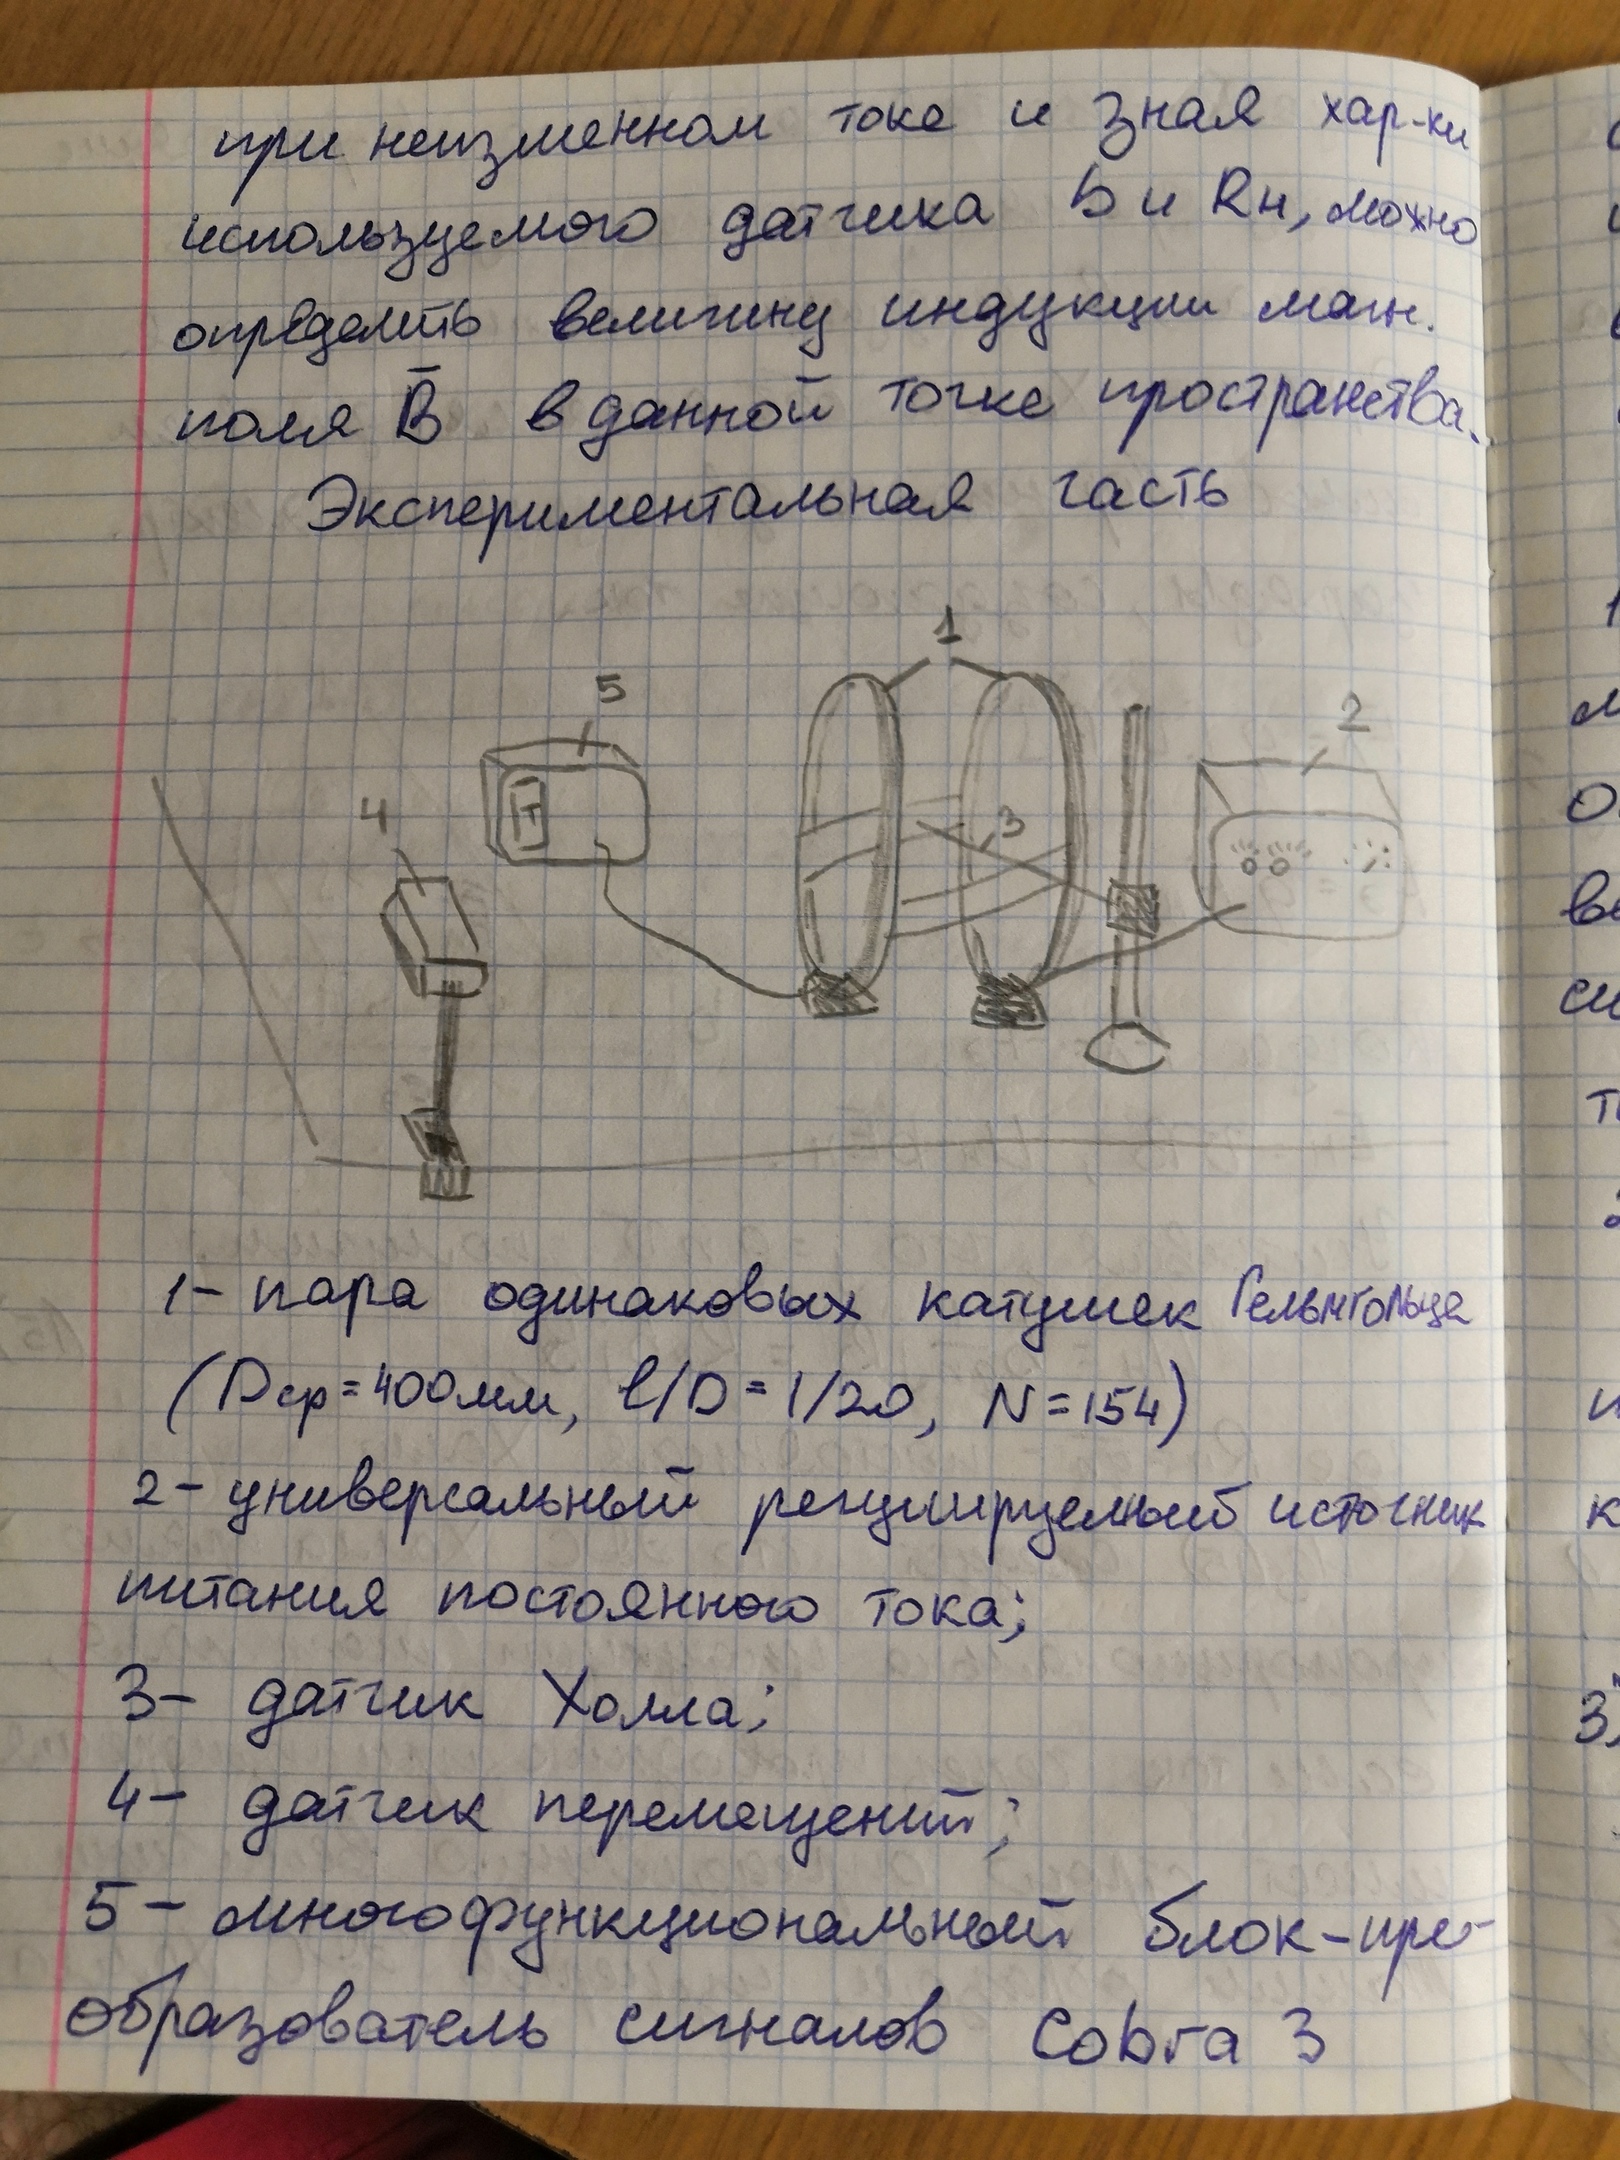 при неизменном токе и зная хар-ки
используемого датчика b и Rн, можно
определить величину индукции магн.
поля B̅ в данной точке пространства.
Экспериментальная часть
1
5
2
4
3
1- пара одинаковых катушек Гельмгольца
(Dср=400мм, l/D=1/20, N=154)
2- универсальный регулируемый источник
питания постоянного тока;
3- датчик Холла;
4- датчик перемещений;
5- многофункциональный блок-пре-
образователь сигналов Cobra 3